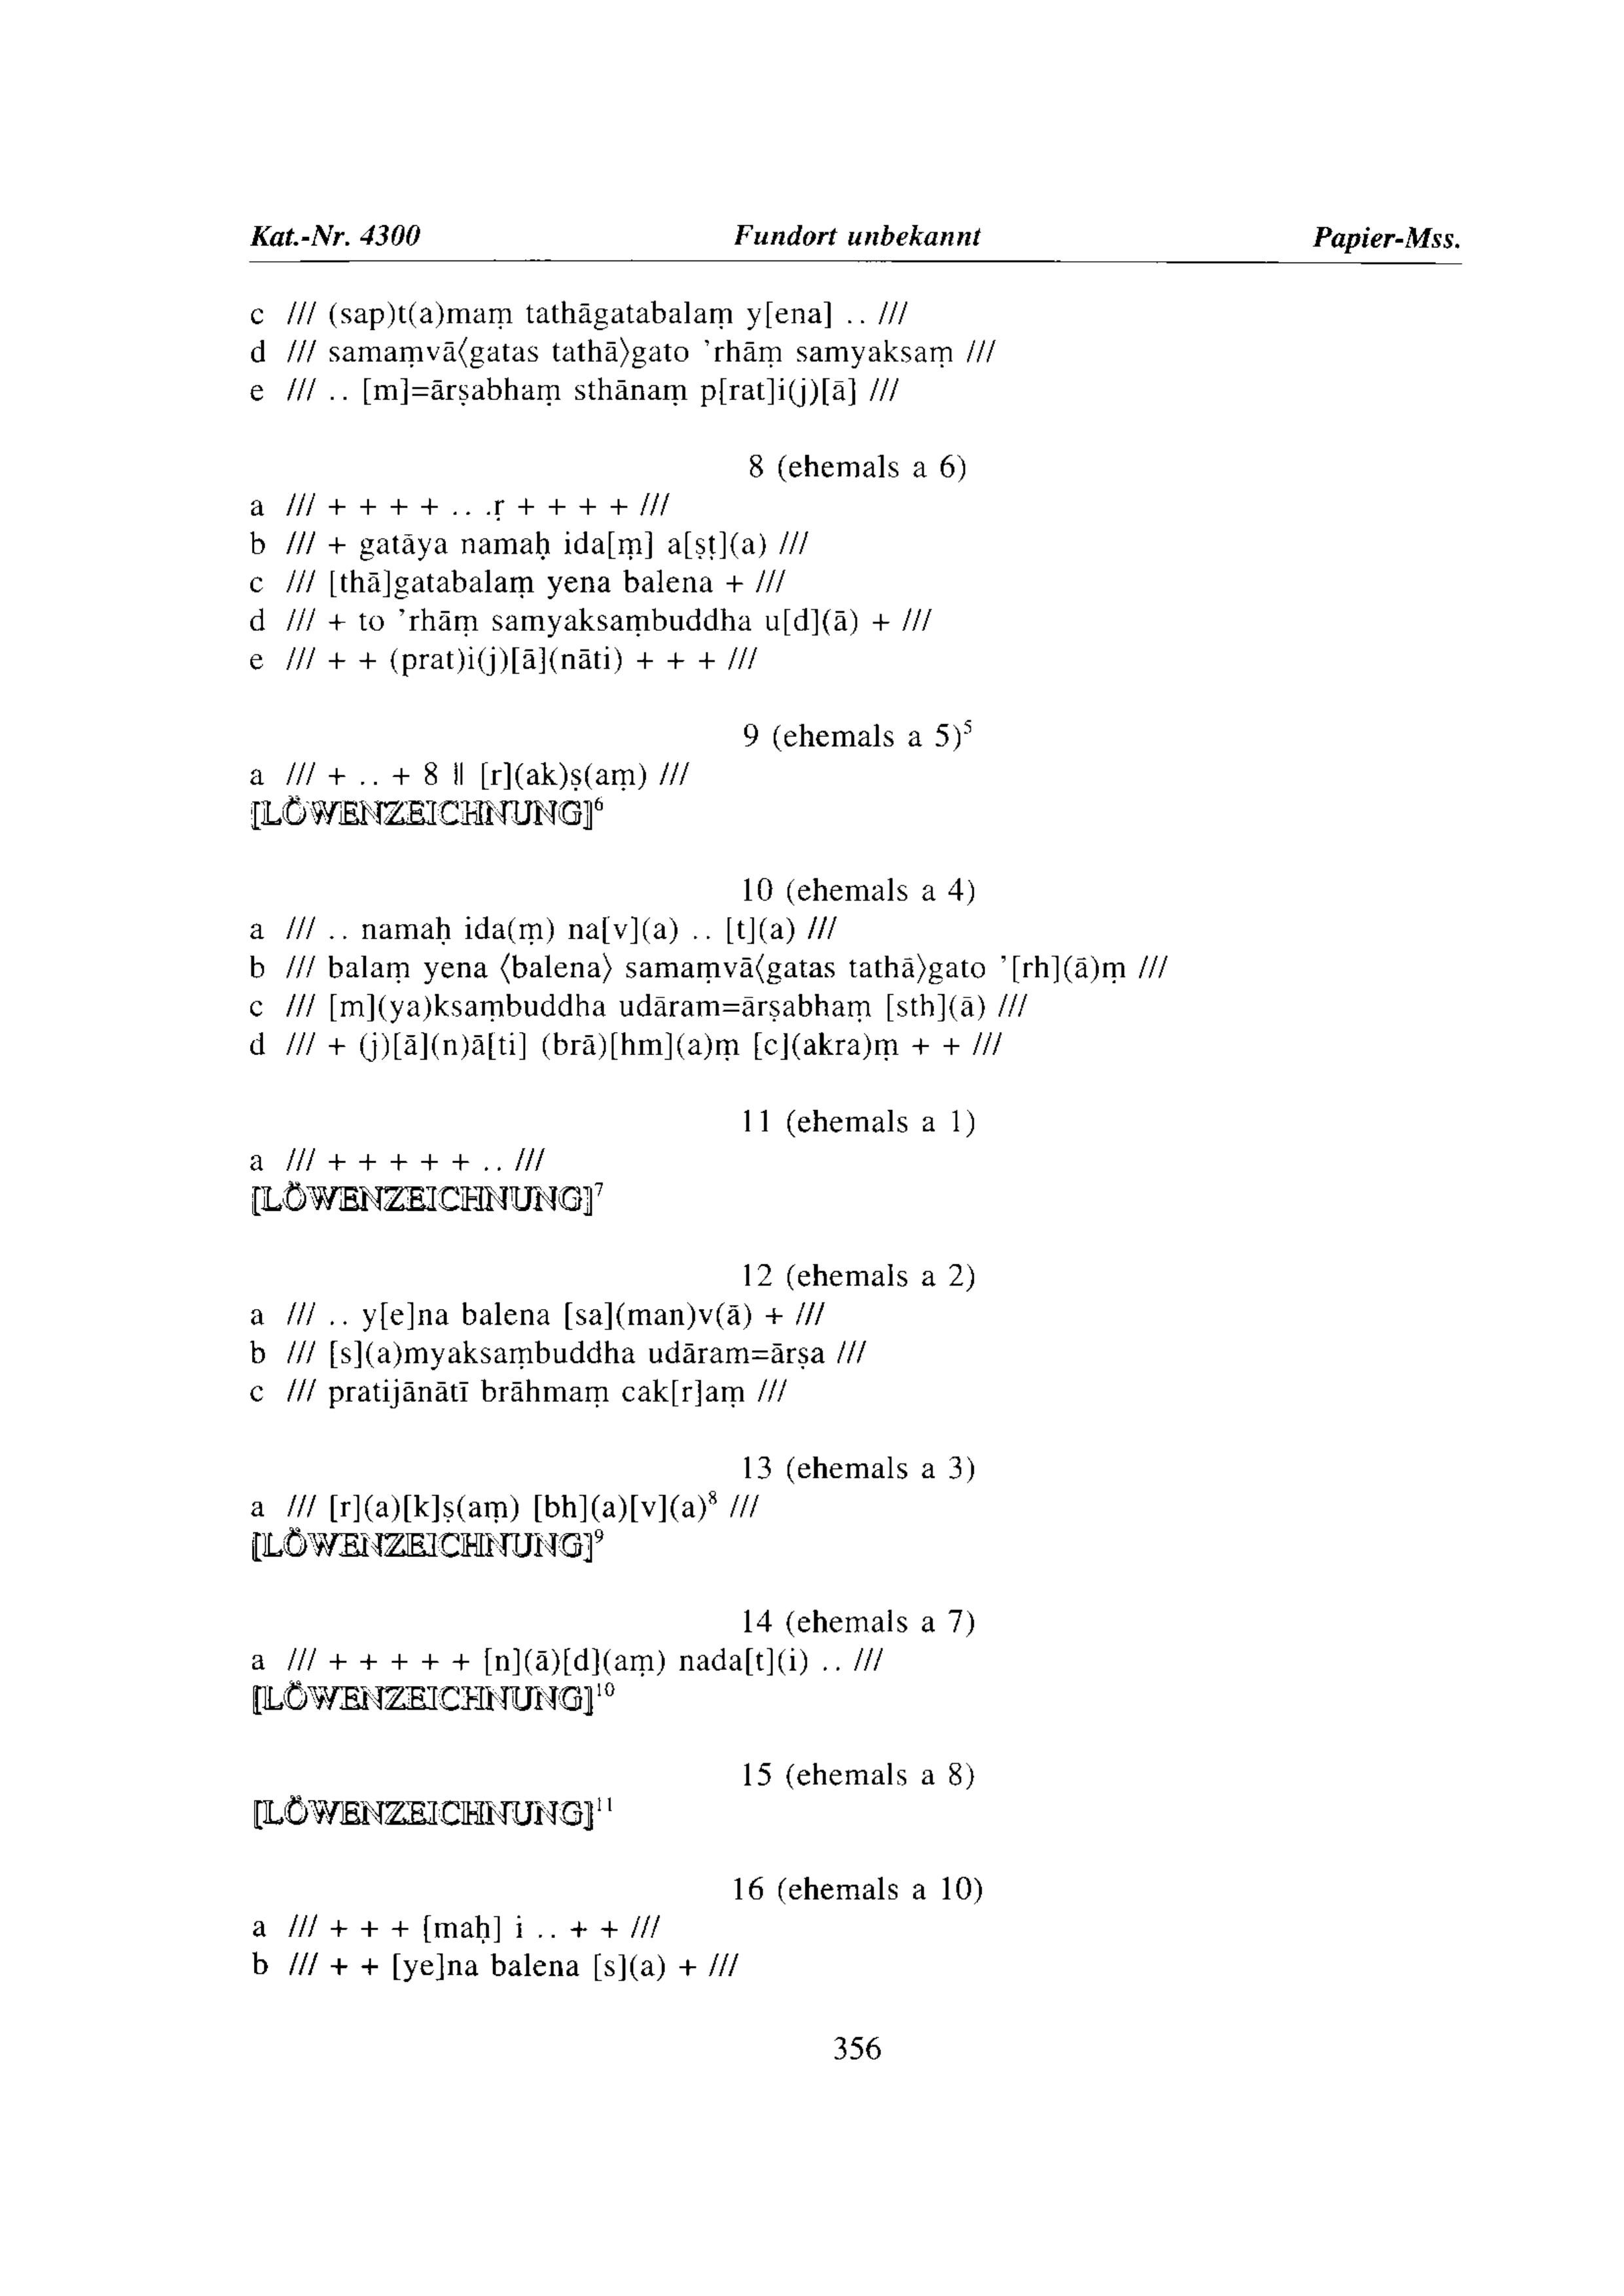 Kat.-Nr. 4300 Fundort unbekannt Papier-Mss.
c /// (sap)t(a)maṃ tathāgatabalaṃ y[ena] .. ///
d /// samaṃvā⟨gatas tathā⟩gato ’rhāṃ samyaksaṃ ///
e /// .. [m]=ārṣabhaṃ sthānaṃ p[rat]i(j)[ā] ///
8 (ehemals a 6)
a /// + + + + .. .ṛ + + + + ///
b /// + gatāya namaḥ ida[ṃ] a[ṣṭ](a) ///
c /// [thā]gatabalaṃ yena balena + ///
d /// + to ’rhāṃ samyaksaṃbuddha u[d](ā) + ///
e /// + + (prat)i(j)[ā](nāti) + + + ///
9 (ehemals a 5)⁵
a /// + .. + 8 ǁ [r](ak)ṣ(aṃ) ///
[LÖWENZEICHNUNG]⁶
10 (ehemals a 4)
a /// .. namaḥ ida(ṃ) na[v](a) .. [t](a) ///
b /// balaṃ yena ⟨balena⟩ samaṃvā⟨gatas tathā⟩gato ’[rh](ā)ṃ ///
c /// [m](ya)ksaṃbuddha udāram=ārṣabhaṃ [sth](ā) ///
d /// + (j)[ā](n)ā[ti] (brā)[hm](a)ṃ [c](akra)ṃ + + ///
11 (ehemals a 1)
a /// + + + + + .. ///
[LÖWENZEICHNUNG]⁷
12 (ehemals a 2)
a /// .. y[e]na balena [sa](man)v(ā) + ///
b /// [s](a)myaksaṃbuddha udāram=ārṣa ///
c /// pratijānātī brāhmaṃ cak[r]aṃ ///
13 (ehemals a 3)
a /// [r](a)[k]ṣ(aṃ) [bh](a)[v](a)⁸ ///
[LÖWENZEICHNUNG]⁹
14 (ehemals a 7)
a /// + + + + + [n](ā)[d](aṃ) nada[t](i) .. ///
[LÖWENZEICHNUNG]¹⁰
15 (ehemals a 8)
[LÖWENZEICHNUNG]¹¹
16 (ehemals a 10)
a /// + + + [maḥ] i .. + + ///
b /// + + [ye]na balena [s](a) + ///
356